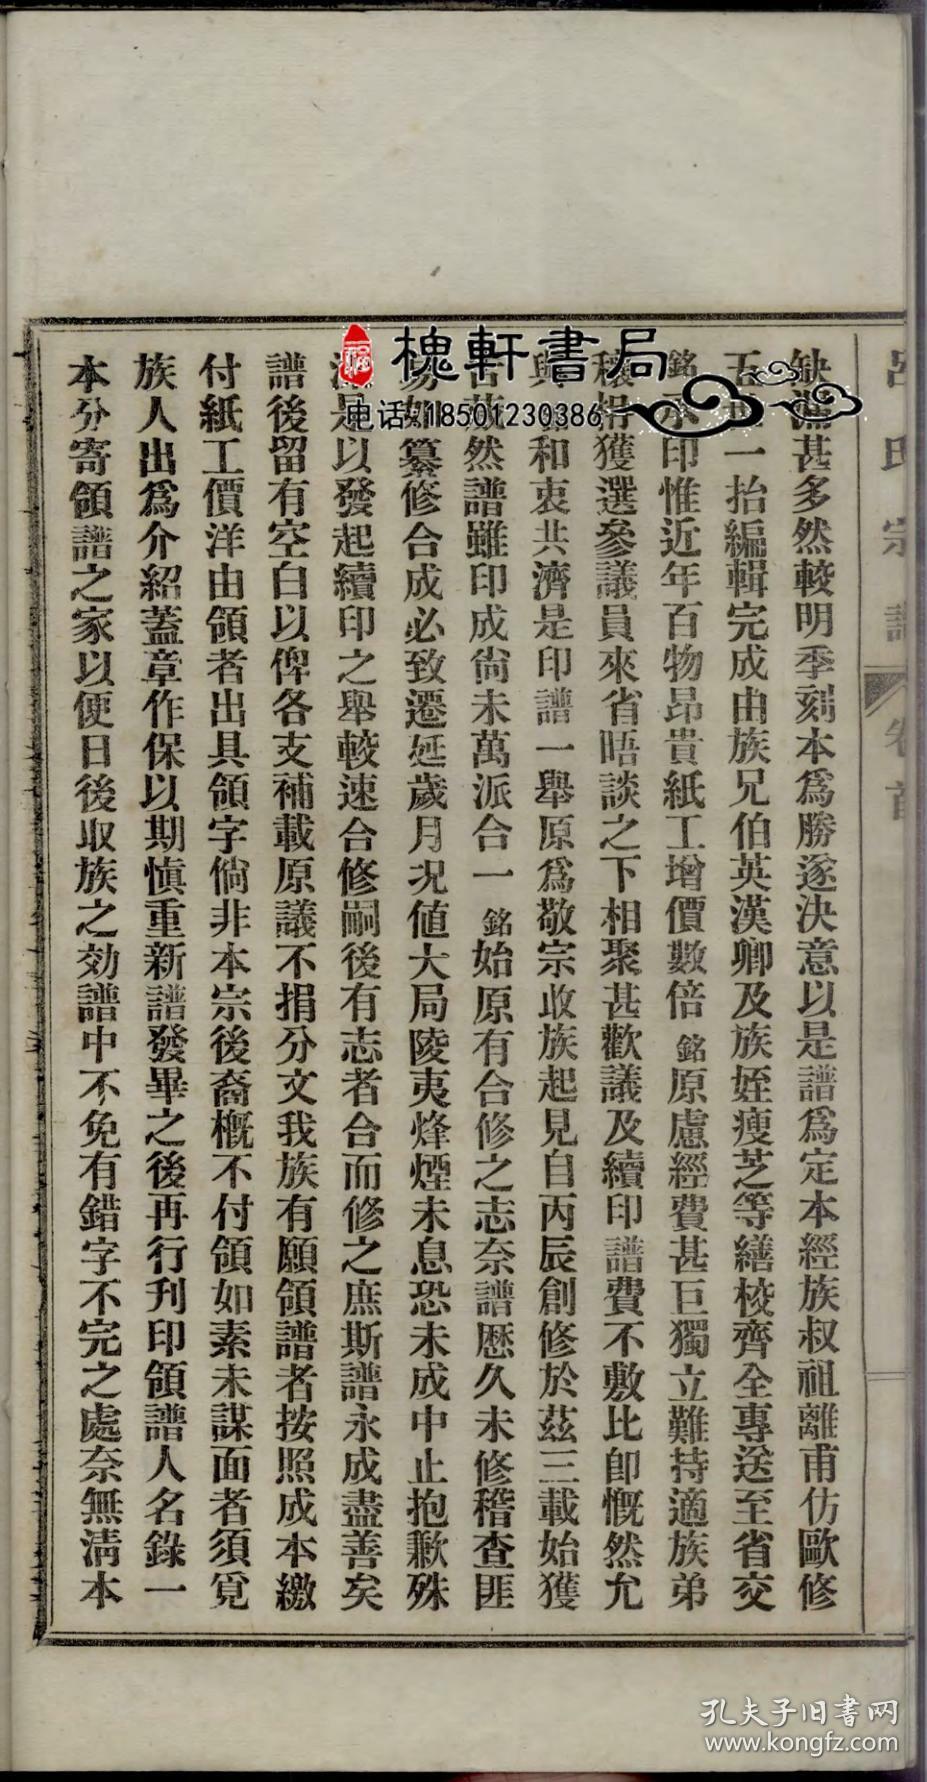 呂氏宗譜 卷首
缺漏甚多然較明季刻本爲勝遂決意以是譜爲定本經族叔祖離甫仿歐修
五世一抬編輯完成由族兄伯英漢卿及族姪瘦芝等繕校齊全專送至省交
銘承印惟近年百物昂貴紙工增價數倍銘原慮經費甚巨獨立難持適族弟
穰獲選參議員來省晤談之下相聚甚歡議及續印譜費不敷比卽慨然允
與和衷共濟是印譜一舉原爲敬宗收族起見自丙辰創修於茲三載始獲
告蕆然譜雖印成尙未萬派合一銘始原有合修之志奈譜歷久未修稽查匪
易如纂修合成必致遷延歲月况値大局陵夷烽煙未息恐未成中止抱歉殊
是以發起續印之舉較速合修嗣後有志者合而修之庶斯譜永成盡善矣
譜後留有空白以俾各支補載原議不捐分文我族有願領譜者按照成本繳
付紙工價洋由領者出具領字倘非本宗後裔槪不付領如素未謀面者須覓
族人出爲介紹蓋章作保以期愼重新譜發畢之後再行刊印領譜人名錄一
本分寄領譜之家以便日後收族之効譜中不免有錯字不完之處奈無淸本
槐軒書局
电话:18501230386
孔夫子旧书网
www.kongfz.com